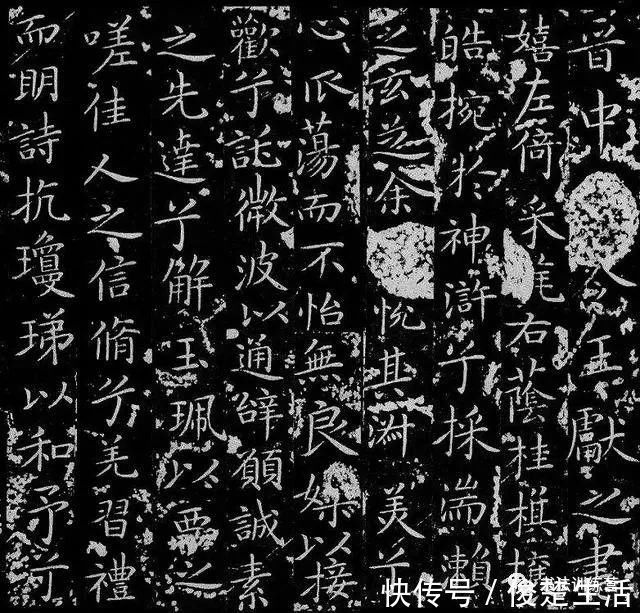 晉中令王獻之書
嬉左倚采旄右蔭桂旗攘
皓捥於神滸兮採湍瀨
之玄芝余悅其淑美兮
心振蕩而不怡無良媒以接
歡兮託微波以通辭願誠素
之先達兮解玉珮以要之
嗟佳人之信脩兮羌習禮
而明詩抗瓊珶以和予兮
快传号/是生活